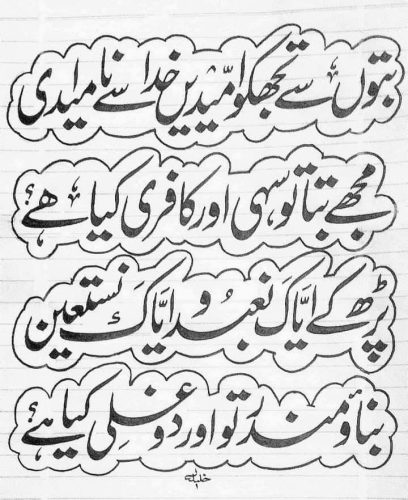 بتوں سے تجھکو امیدیں خدا سے نا امیدی
مجھے بتا تو سہی اور کافری کیا ہے؟
پڑھ کے اِیَّاکَ نَعبُدُ و اِیَّاکَ نَستَعِین
بناؤ مندر تو اور دوغلی کیا ہے؟